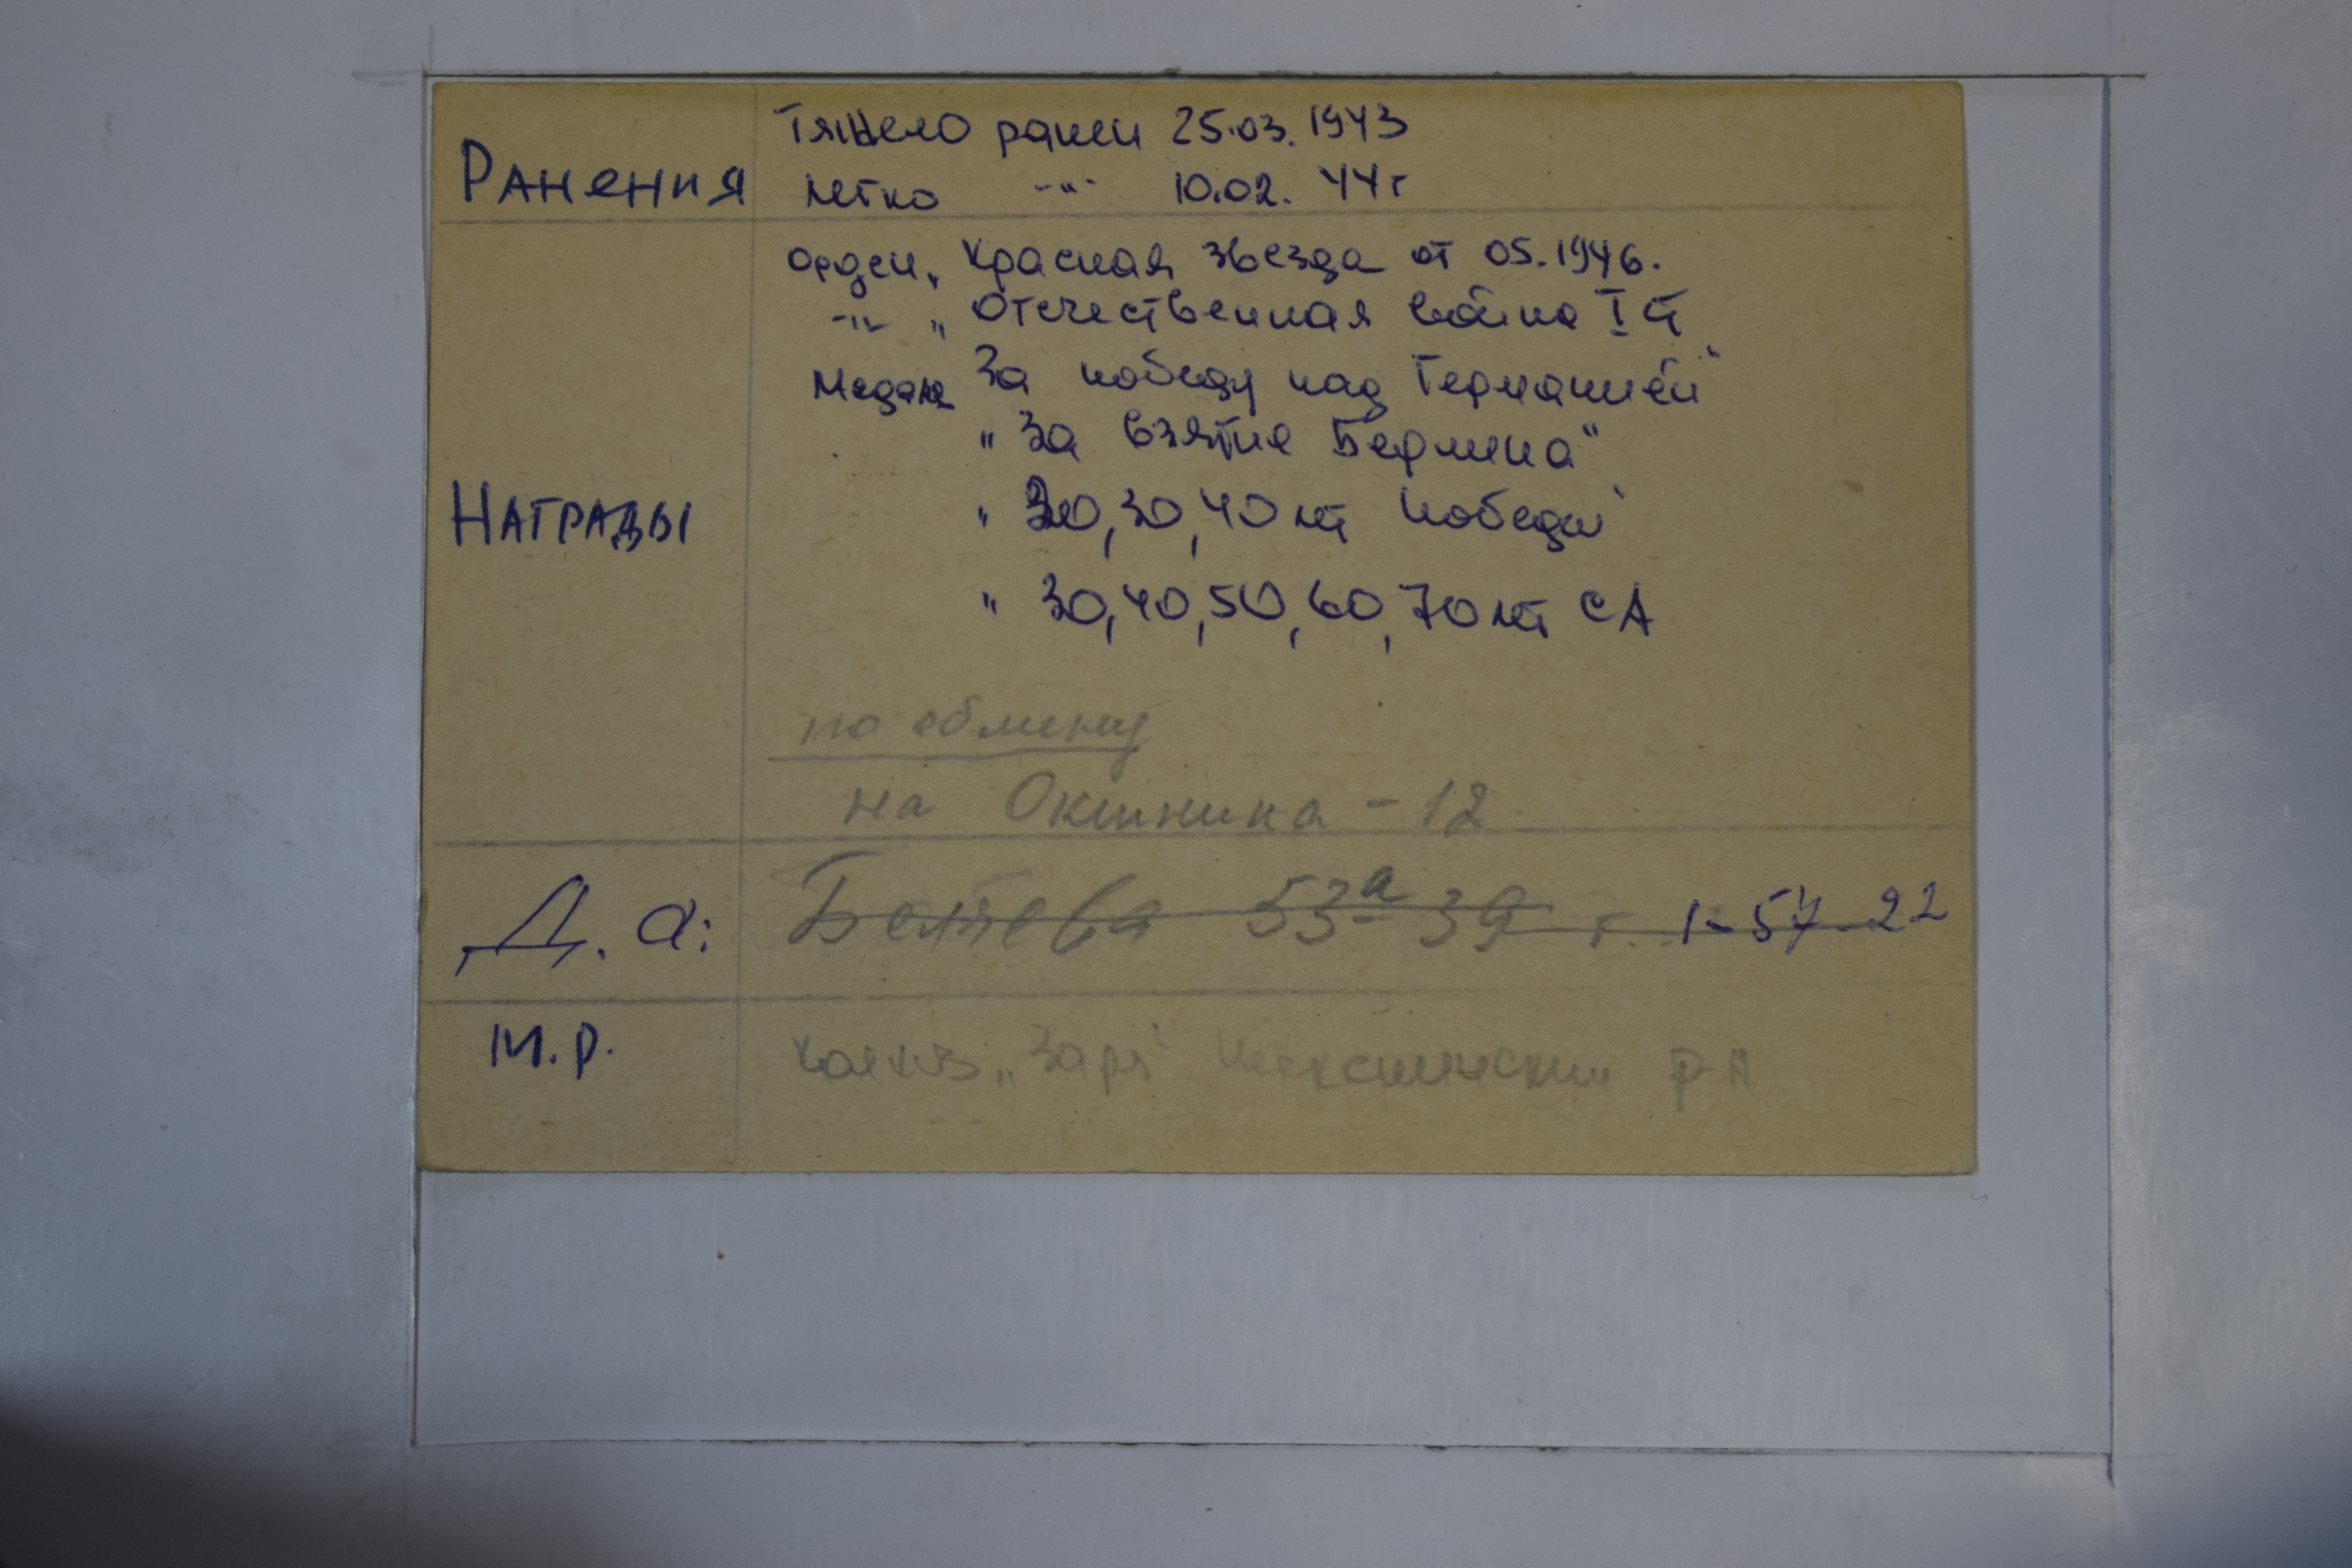 Ранения
Тяжело ранен 25.03.1943
легко -"- 10.02. 44г
Награды
орден „Красная звезда от 05.1946.
-"- „Отечественная война I ст
Медаль За победу над Германией"
"За взятие Берлина"
" 20, 30, 40 лет Победы"
" 30, 40, 50, 60, 70 лет СА
по обмену
на Окинина - 12
Д. а: Беляева 53а 39 т. 1-57-22
М.р. Колхоз „Заря" р-н